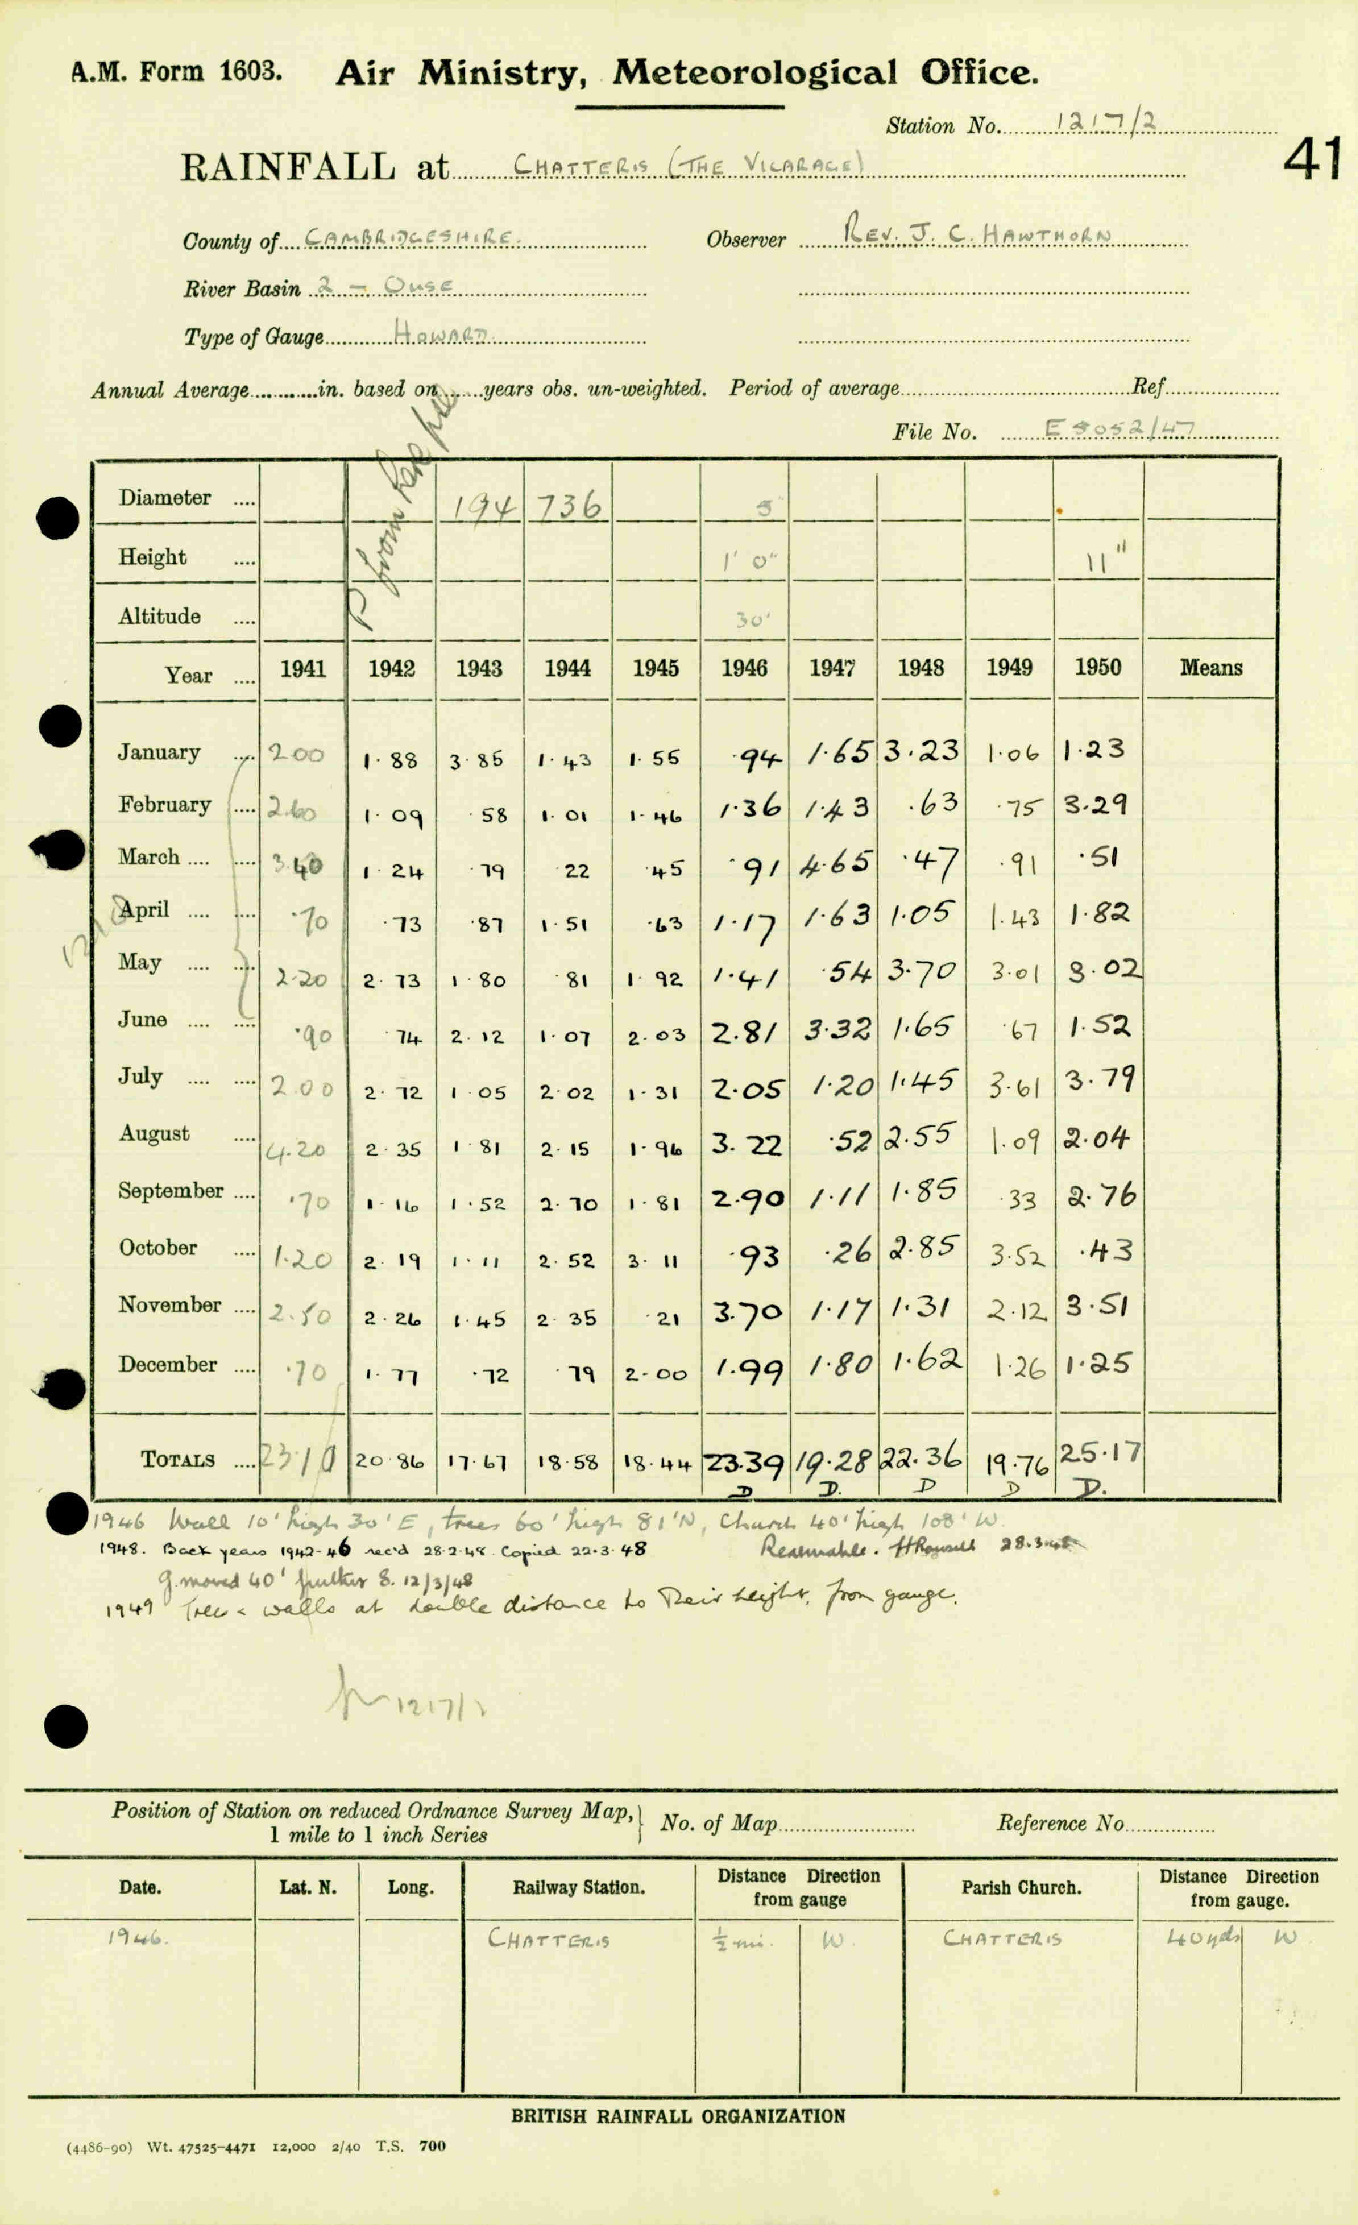 A.M. Form 1603. Air Ministry, Meteorological Office.
Station No. 1217/2
41
RAINFALL at CHATTERIS (THE VICARAGE)
County of CAMBRIDGESHIRE. Observer REV. J. C. HAWTHORN
River Basin 2 - OUSE
Type of Gauge HOWARD.
Annual Average in. based on years obs. un-weighted. Period of average Ref.
File No. E 5052/47
P from
Diameter 194 736 5
Height 1' 0" 11"
Altitude 30'
Year 1941 1942 1943 1944 1945 1946 1947 1948 1949 1950 Means
January 2.00 1.88 3.85 1.43 1.55 .94 1.65 3.23 1.06 1.23
February 2.60 1.09 .58 1.01 1.46 1.36 1.43 .63 .75 3.29
March 3.40 1.24 .79 .22 .45 .91 4.65 .47 .91 .51
April .70 .73 .87 1.51 .63 1.17 1.63 1.05 1.43 1.82
May 2.20 2.73 1.80 .81 1.92 1.41 .54 3.70 3.01 3.02
June .90 .74 2.12 1.07 2.03 2.81 3.32 1.65 .67 1.52
July 2.00 2.72 1.05 2.02 1.31 2.05 1.20 1.45 3.61 3.79
August 4.20 2.35 1.81 2.15 1.96 3.22 .52 2.55 1.09 2.04
September .70 1.16 1.52 2.70 1.81 2.90 1.11 1.85 .33 2.76
October 1.20 2.19 1.11 2.52 3.11 .93 .26 2.85 3.52 .43
November 2.50 2.26 1.45 2.35 .21 3.70 1.17 1.31 2.12 3.51
December .70 1.77 .72 .79 2.00 1.99 1.80 1.62 1.26 1.25
TOTALS 23.10 20.86 17.67 18.58 18.44 23.39 19.28 22.36 19.76 25.17
D D. D D D.
1946 Wall 10' high 30' E, trees 60' high 81' N, Church 40' high 108' W.
1948. Back years 1942-46 rec'd 28.2.48. Copied 22.3.48 Reasonable. 28.3.48
g. moved 40' further S. 12/3/48
1949 Trees & walls at double distance to their height, from gauge.
1217/1
Position of Station on reduced Ordnance Survey Map, 1 mile to 1 inch Series } No. of Map Reference No.
Date. Lat. N. Long. Railway Station. Distance Direction from gauge Parish Church. Distance Direction from gauge.
1946. CHATTERIS ½ mi. W. CHATTERIS 40 yds W.
BRITISH RAINFALL ORGANIZATION
(4486-90) Wt. 47525-4471 12,000 2/40 T.S. 700